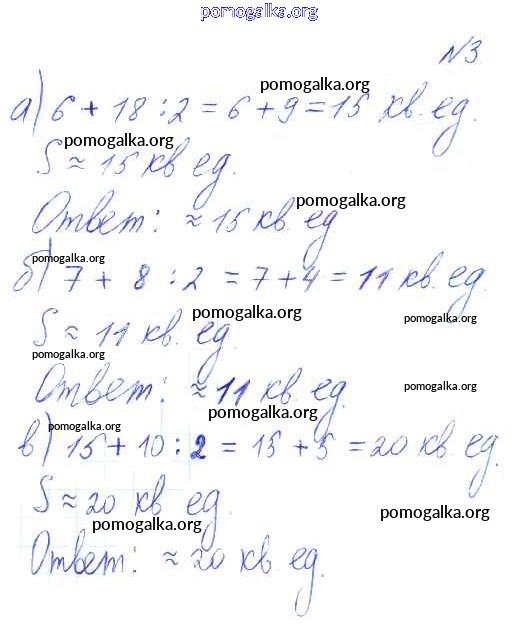 pomogalka.org
№3
pomogalka.org
а) 6 + 18 : 2 = 6 + 9 = 15 кв. ед.
pomogalka.org
S ≈ 15 кв. ед.
pomogalka.org
Ответ: ≈ 15 кв. ед
pomogalka.org
б) 7 + 8 : 2 = 7 + 4 = 11 кв. ед.
pomogalka.org
pomogalka.org
S ≈ 11 кв. ед.
pomogalka.org
Ответ: ≈ 11 кв. ед.
pomogalka.org
pomogalka.org
pomogalka.org
в) 15 + 10 : 2 = 15 + 5 = 20 кв. ед.
S ≈ 20 кв. ед.
pomogalka.org
pomogalka.org
Ответ: ≈ 20 кв. ед.